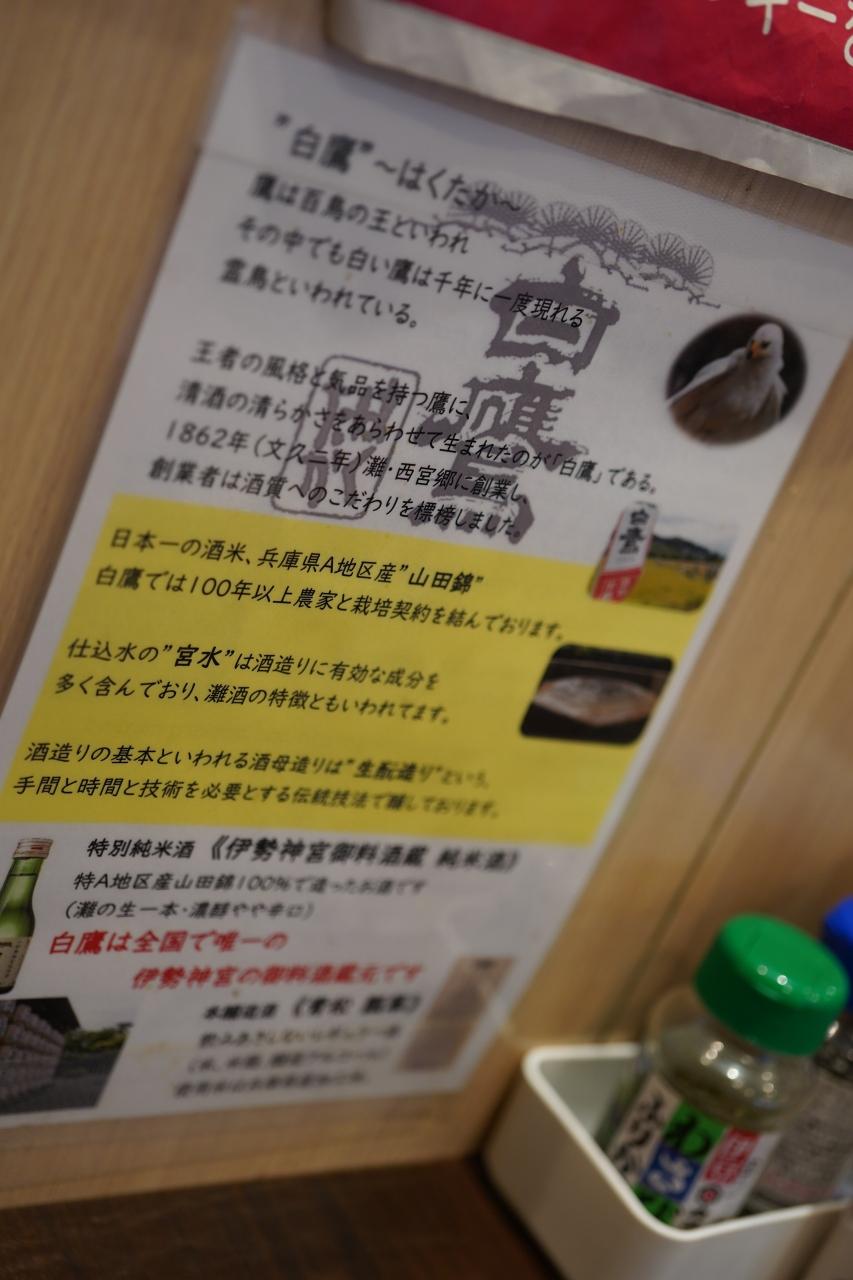 "白鷹"～はくたか～
鷹は百鳥の王といわれ
その中でも白い鷹は千年に一度現れる
霊鳥といわれている。
白鷹
王者の風格と気品を持つ鷹に、
清酒の清らかさをあらわせて生まれたのが「白鷹」である。
1862年(文久二年)灘・西宮郷に創業し、
創業者は酒質へのこだわりを標榜しました。
日本一の酒米、兵庫県A地区産"山田錦"
白鷹では100年以上農家と栽培契約を結んでおります。
仕込水の"宮水"は酒造りに有効な成分を
多く含んでおり、灘酒の特徴ともいわれてます。
酒造りの基本といわれる酒母造りは"生酛造り"という、
手間と時間と技術を必要とする伝統技法で醸しております。
特別純米酒 《伊勢神宮御料酒蔵 純米酒》
特A地区産山田錦100%で造ったお酒です
(灘の生一本・濃醇やや辛口)
白鷹は全国で唯一の
伊勢神宮の御料酒蔵元です
わさび
ふりかけ